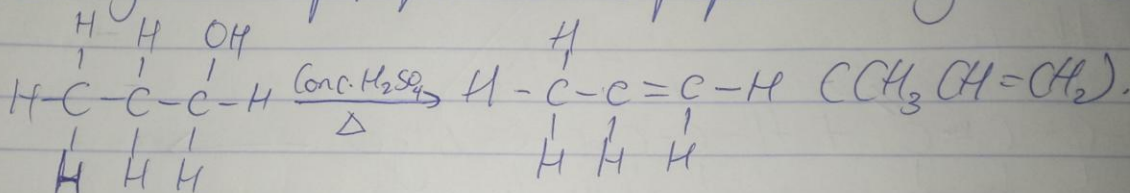 H H OH H
H-C-C-C-H Conc. H₂SO₄ → H-C-C=C-H (CH₃CH=CH₂).
Δ
H H H H H H